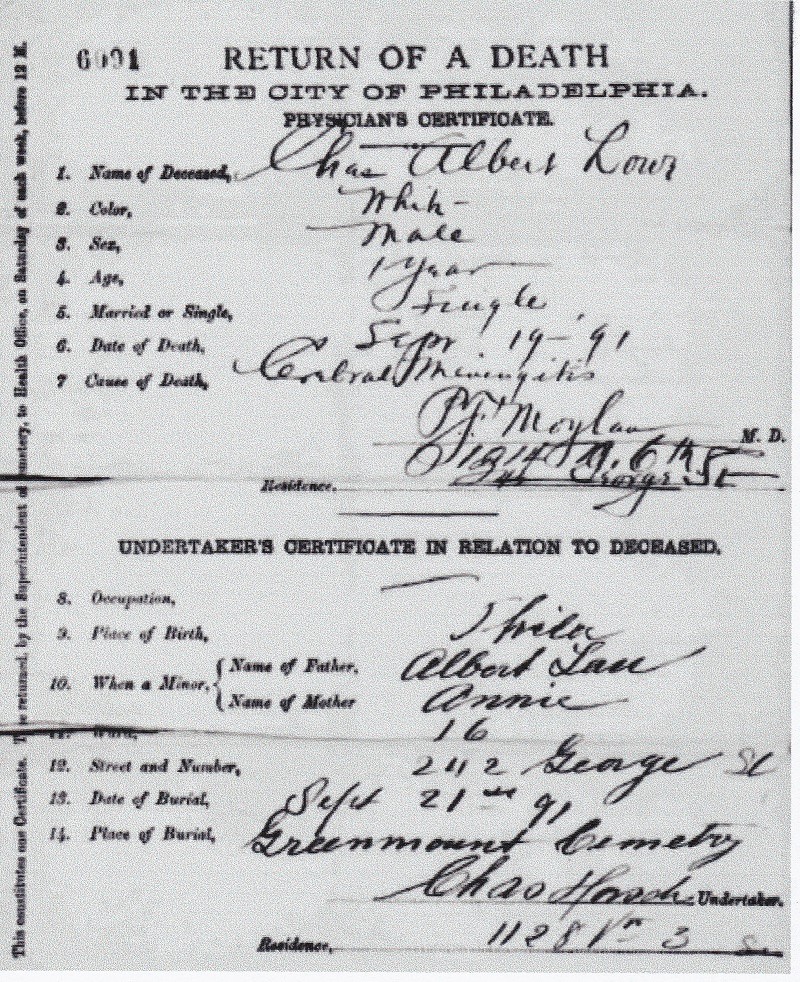 6091
RETURN OF A DEATH
IN THE CITY OF PHILADELPHIA.
PHYSICIAN'S CERTIFICATE.
1. Name of Deceased, Chas Albert
2. Color, White
3. Sex, Male
4. Age, 1 year
5. Married or Single, Single
6. Date of Death, Sept 19-91
7 Cause of Death, Cerebral Miningitis
P.F. Moylan M. D.
1914 N. 6th St
Residence. George
UNDERTAKER'S CERTIFICATE IN RELATION TO DECEASED.
8. Occupation,
9. Place of Birth, Phila
10. When a Minor, { Name of Father, Albert
Name of Mother Annie
11. Ward, 16
12. Street and Number, 242 George St
13. Date of Burial, Sept 21st 91
14. Place of Burial, Greenmount Cemetry
Chas Undertaker.
Residence, 1128 Nn 3 St
This constitutes one Certificate. To be returned, by the Superintendent of Cemetery, to Health Office, on Saturday of each week, before 12 M.